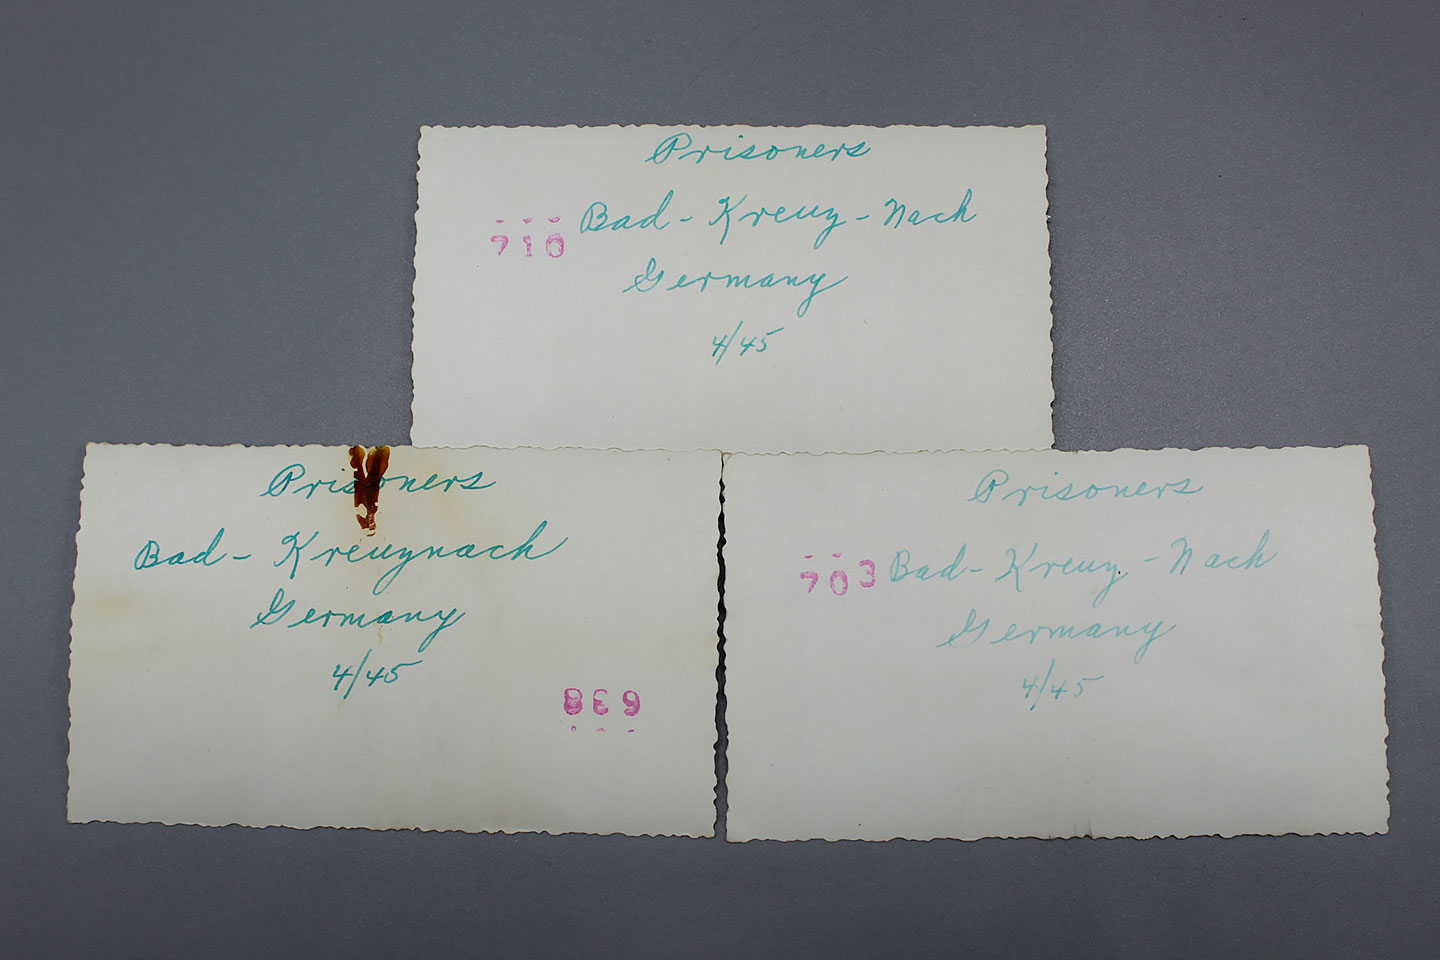 Prisoners
710 Bad - Kreuz - Nach
Germany
4/45
Prisoners
Bad - Kreuznach
Germany
4/45
638
Prisoners
703 Bad - Kreuz - Nach
Germany
4/45